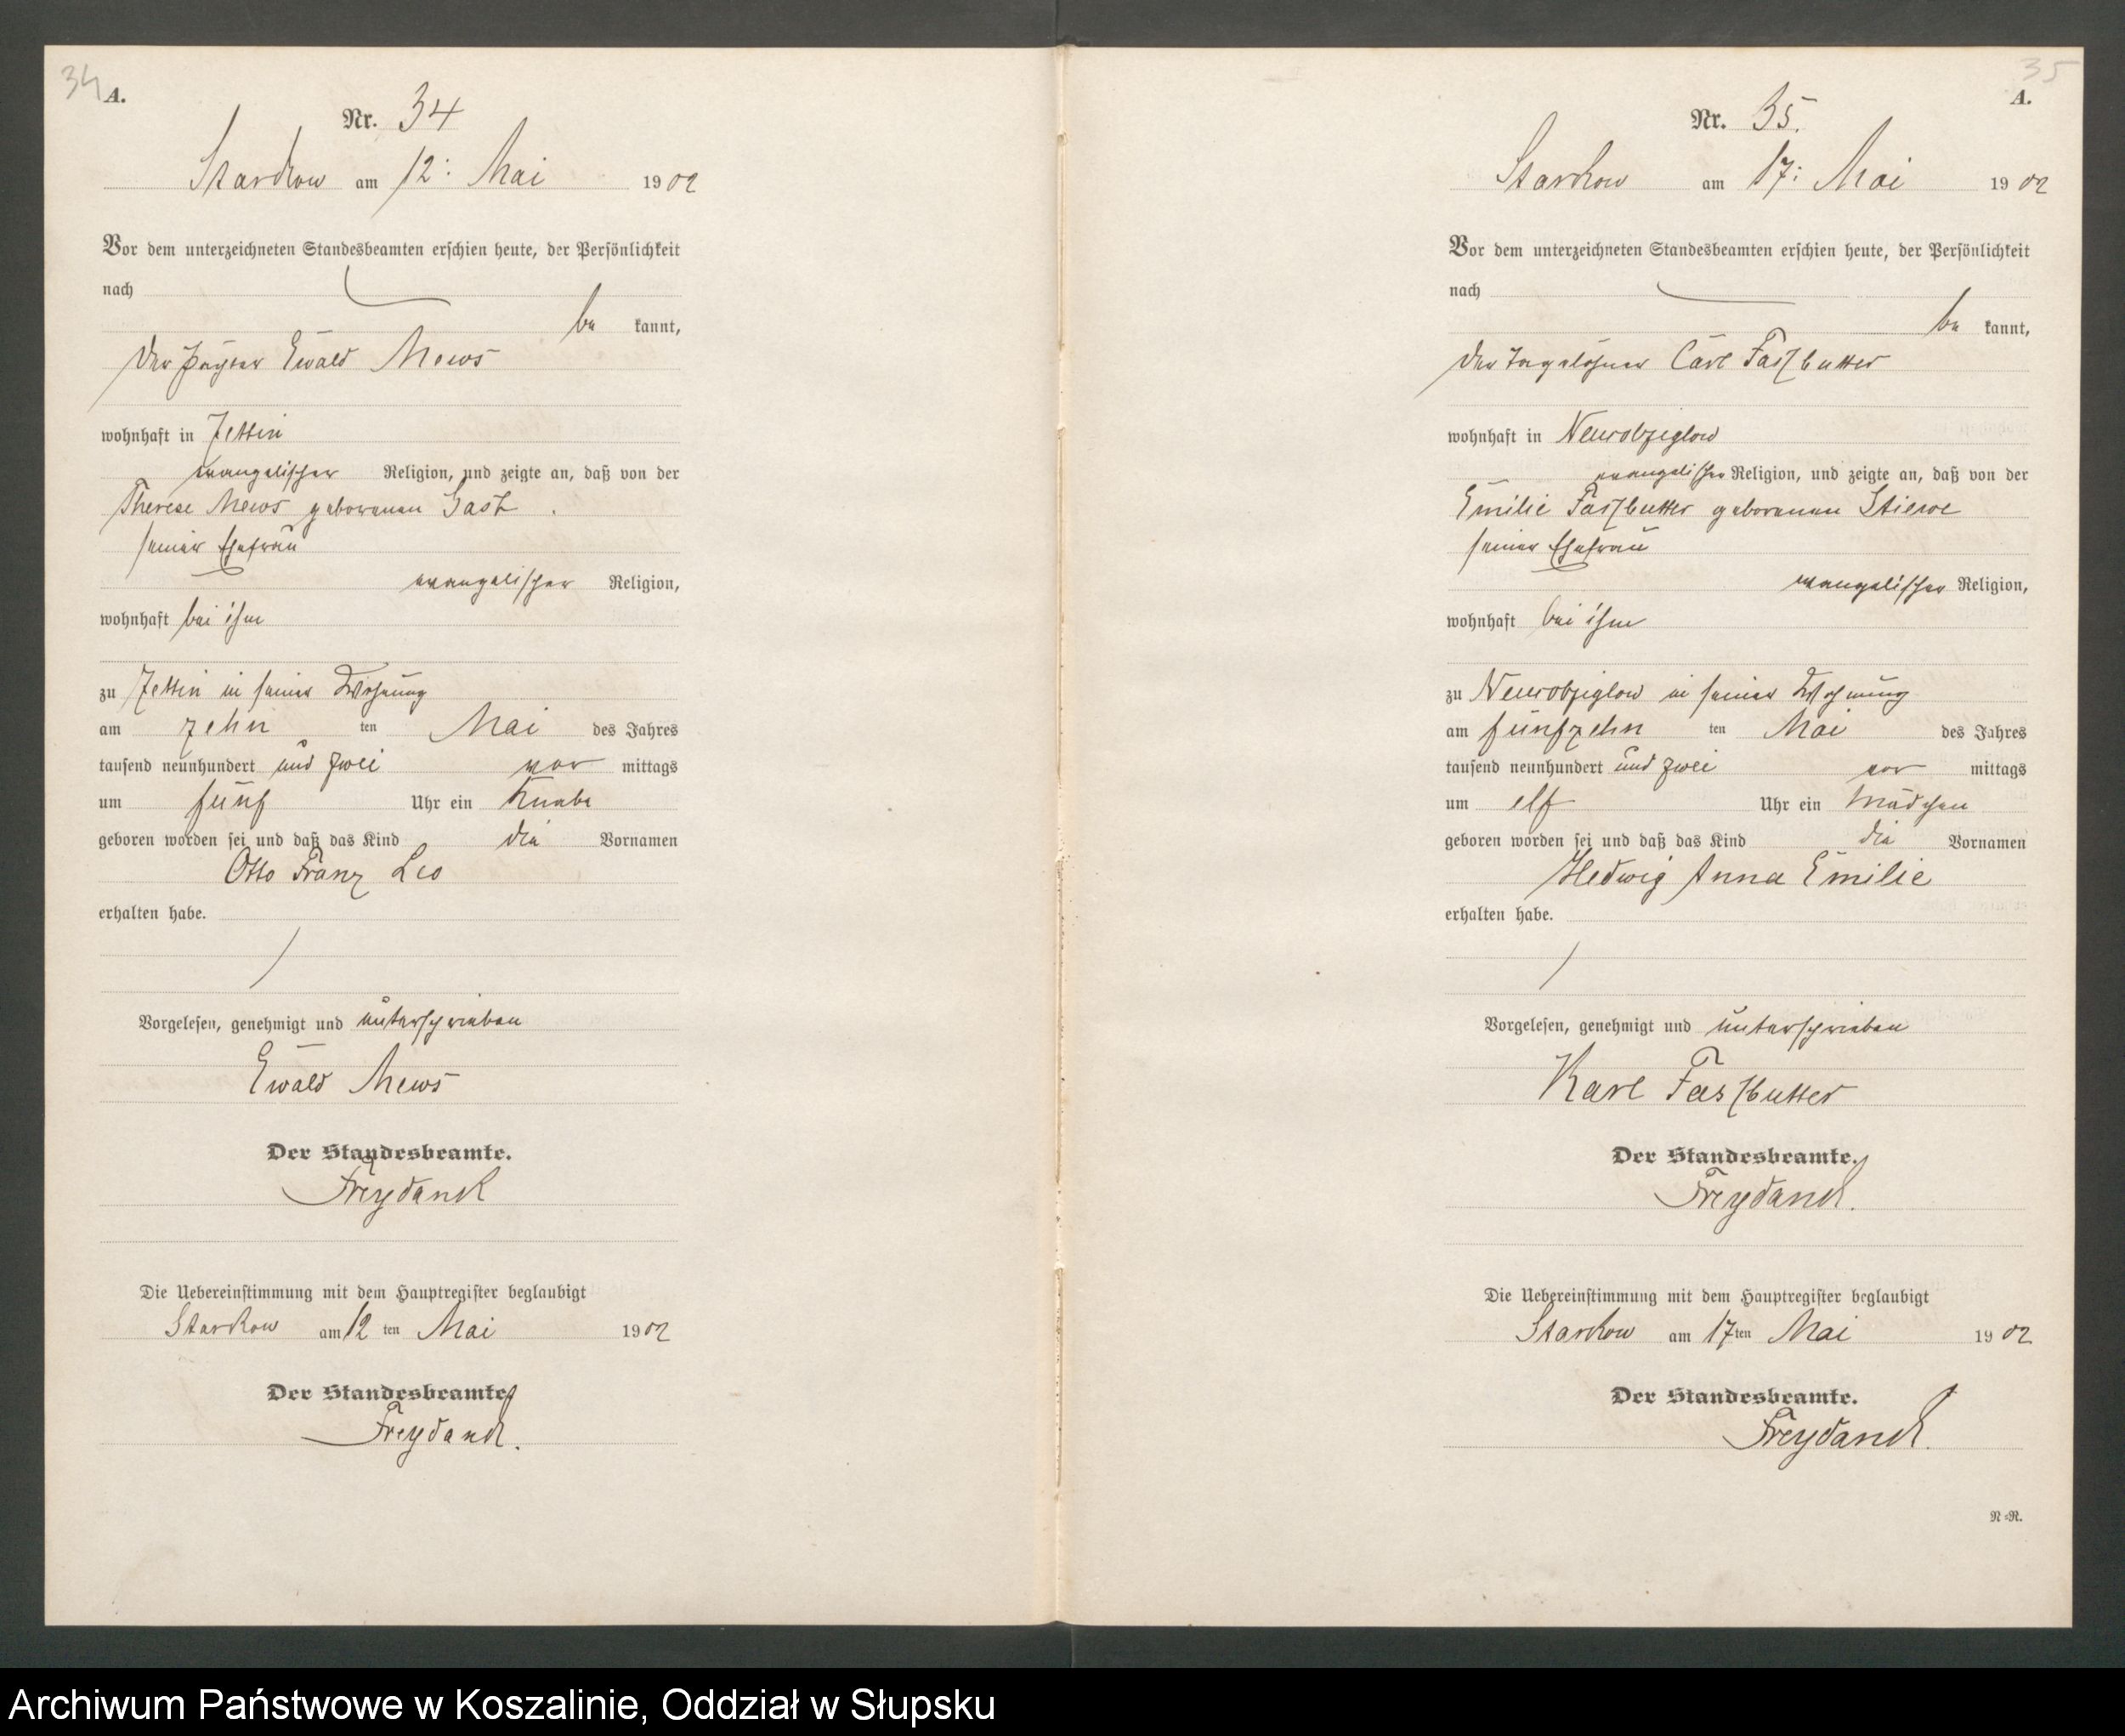 34
A.
Nr. 34
Starkow am 12: Mai 1902
Vor dem unterzeichneten Standesbeamten erschien heute, der Persönlichkeit
nach
be kannt,
der Pächter Ewald Mews
wohnhaft in Zettin
evangelischer Religion, und zeigte an, daß von der
Therese Mews geborenen Gast
seiner Ehefrau
evangelischer Religion,
wohnhaft bei ihm
zu Zettin in seiner Wohnung
am zehn ten Mai des Jahres
tausend neunhundert und zwei vor mittags
um fünf Uhr ein Knabe
geboren worden sei und daß das Kind die Vornamen
Otto Franz Leo
erhalten habe.
Vorgelesen, genehmigt und unterschrieben
Ewald Mews
Der Standesbeamte.
Freydank
Die Uebereinstimmung mit dem Hauptregister beglaubigt
Starkow am 12 ten Mai 1902
Der Standesbeamte.
Freydank.
35
A.
Nr. 35.
Starkow am 17: Mai 1902
Vor dem unterzeichneten Standesbeamten erschien heute, der Persönlichkeit
nach
be kannt,
der Tagelöhner Carl Faszbutter
wohnhaft in Neurobziglow
evangelischer Religion, und zeigte an, daß von der
Emilie Faszbutter geborenen Stiewe
seiner Ehefrau
evangelischer Religion,
wohnhaft bei ihm
zu Neurobziglow in seiner Wohnung
am fünfzehn ten Mai des Jahres
tausend neunhundert und zwei vor mittags
um elf Uhr ein Mädchen
geboren worden sei und daß das Kind die Vornamen
Hedwig Anna Emilie
erhalten habe.
Vorgelesen, genehmigt und unterschrieben
Karl Faszbutter
Der Standesbeamte.
Freydank.
Die Uebereinstimmung mit dem Hauptregister beglaubigt
Starkow am 17ten Mai 1902
Der Standesbeamte.
Freydank.
N=R.
Archiwum Państwowe w Koszalinie, Oddział w Słupsku